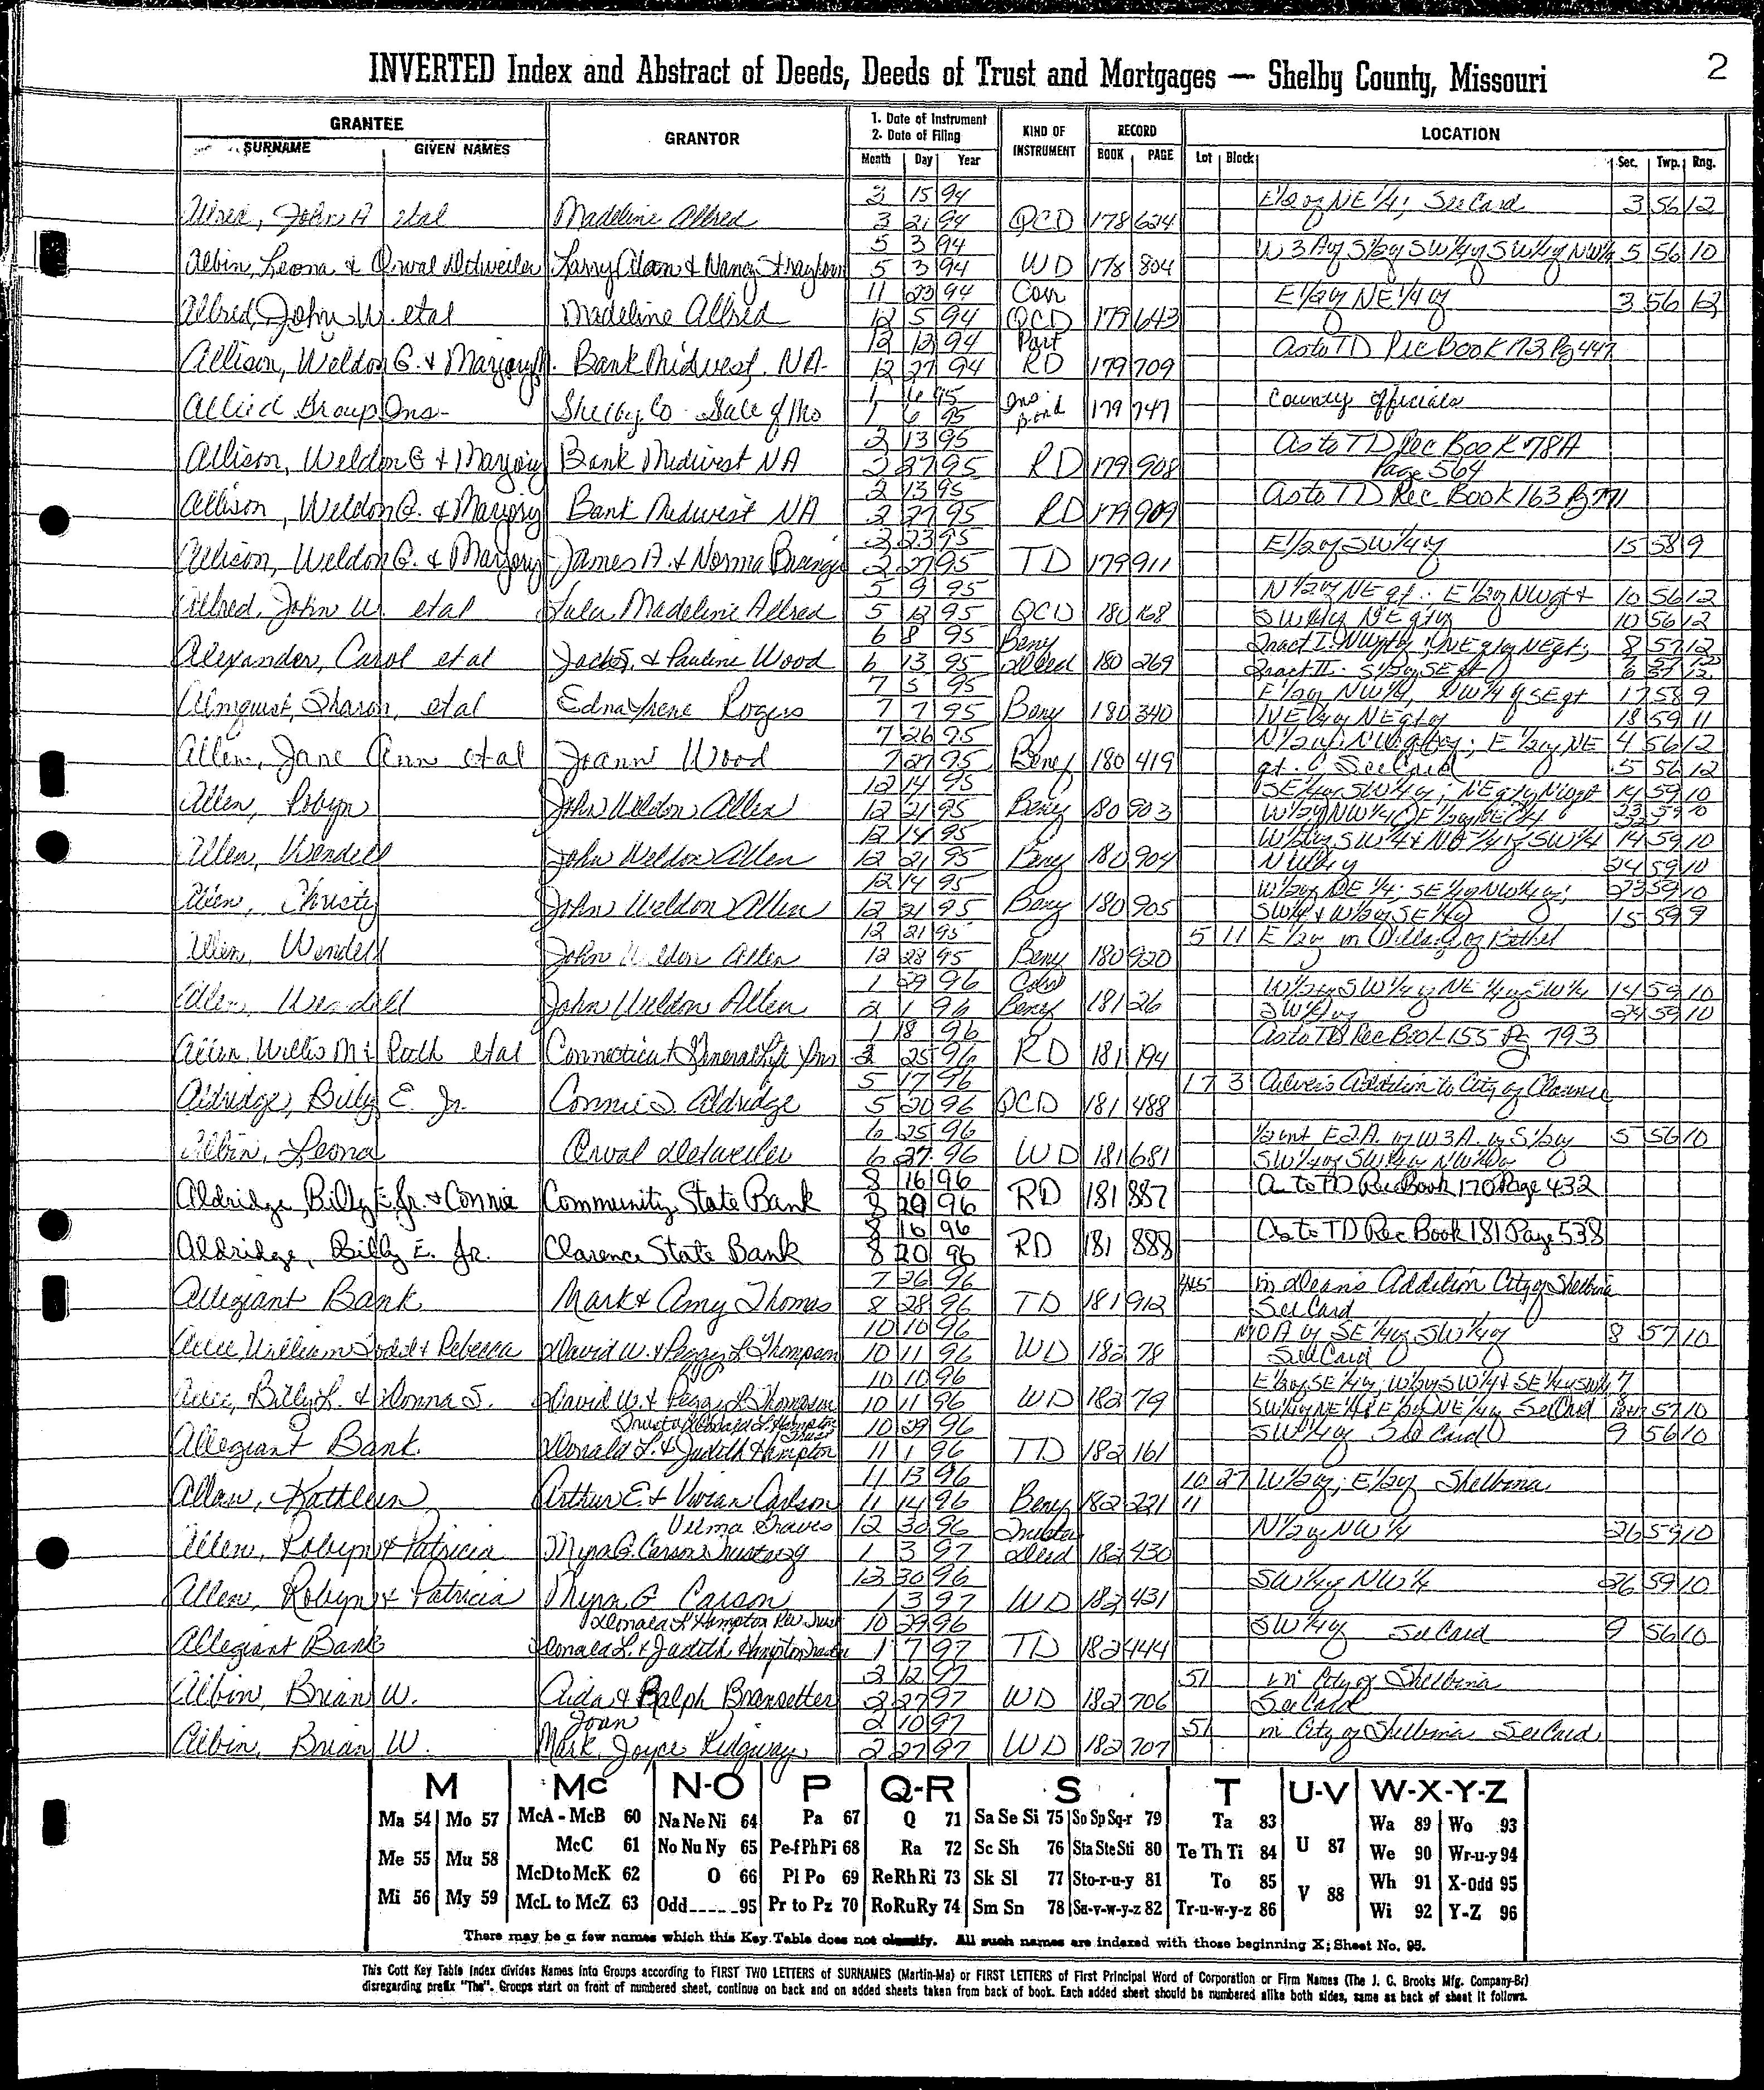 2
INVERTED Index and Abstract of Deeds, Deeds of Trust and Mortgages — Shelby County, Missouri
GRANTEE GRANTOR 1. Date of Instrument 2. Date of Filing KIND OF INSTRUMENT RECORD LOCATION
SURNAME GIVEN NAMES Month Day Year BOOK PAGE Lot Block Sec. Twp. Rng.
3 15 94 E 1/2 of NE 1/4; See Card 3 56 12
John A etal Madeline Allred 3 21 94 QCD 178 624
5 3 94 W 3 A of S 1/2 of SW 1/4 of SW 1/4 of NW 1/4 5 56 10
Albin, Leona & Orval Detweiler Larry Alan & Nancy 5 3 94 WD 178 804
11 23 94 Corr E 1/2 of NE 1/4 of 3 56 12
Allred, John W. etal Madeline Allred 12 5 94 QCD 179 643
12 12 94 Part As to TD Rec Book 173 Pg 447
Allison, Weldon G. & Marjory Bank Midwest NA 12 27 94 RD 179 709
1 6 95 Ins County Officials
Allied Group Ins Shelby Co State of Mo 1 6 95 Bond 179 747
2 13 95 As to TD Rec Book 178A
Allison, Weldon G & Marjory Bank Midwest NA 2 27 95 RD 179 908 Page 564
2 13 95 As to TD Rec Book 163 Pg
Allison, Weldon G. & Marjory Bank Midwest NA 2 27 95 RD 179 909
2 23 95 E 1/2 of SW 1/4 of 15 58 9
Allison, Weldon G. & Marjory James A. & Norma 2 27 95 TD 179 911
5 9 95 N 1/2 of NE qt.: E 1/2 of NW qt & 10 56 12
Allred, John W. etal Lula Madeline Allred 5 12 95 QCD 180 168 10 56 12
6 8 95 Beny 8 57 12
Alexander, Carol etal & Pauline Wood 6 13 95 Deed 180 269 Tract II: S 1/2 of SE qt
7 5 95 E 1/2 of NW 1/4, NW 1/4 of SE qt 17 58 9
Almquist, Sharon, etal Edna Irene Rogers 7 7 95 Beny 180 340 NE 1/4 of NE qt of 18 59 11
7 26 95 E 1/2 of NE 4 56 12
Allen, Jane Ann etal Joann Wood 7 27 95 Benef 180 419 qt. See Card 5 56 12
12 14 95 SE 1/4 of SW 1/4 of; NE qt of NW qt 14 59 10
Allen, Robyn John Weldon Allen 12 21 95 Beny 180 903
12 14 95 W 1/2 of SW 1/4 & NE 1/4 of SW 1/4 14 59 10
Allen, Wendell John Weldon Allen 12 21 95 Beny 180 904 NW 1/4 of 24 59 10
12 14 95 W 1/2 of NE 1/4; SE 1/4 of NW 1/4 of; 23 59 10
Allen, Christy John Weldon Allen 12 21 95 Beny 180 905 SW 1/4 & W 1/2 of SE 1/4 of 15 59 9
12 21 95 5 11 E 1/2 of in Village of Bethel
Allen, Wendell John Weldon Allen 12 28 95 Beny 180 920
1 29 96 W 1/2 of SW 1/4 of NE 1/4 of SW 1/4 14 59 10
Allen, Wendell John Weldon Allen 2 1 96 Beny 181 26 SW 1/4 of 24 59 10
1 18 96 As to TD Rec Book 155 Pg 793
Allen, Willis M & Ruth etal Connecticut General Life Ins 3 25 96 RD 181 194
5 17 96 17 3 Culver's Addition to City of Clarence
Aldridge, Billy E. Jr. Connie S. Aldridge 5 20 96 QCD 181 488
6 25 96 1/2 int E 2 A. of W 3 A. of S 1/2 of 5 56 10
Albin, Leona Orval Detweiler 6 27 96 WD 181 681 SW 1/4 of SW 1/4 of NW 1/4 of
8 16 96 As to TD Rec Book 170 Page 432
Aldridge, Billy E. Jr. & Connie Community State Bank 8 20 96 RD 181 887
8 16 96 As to TD Rec Book 181 Page 538
Aldridge, Billy E. Jr. Clarence State Bank 8 20 96 RD 181 888
7 26 96 4&5 in Dean's Addition City of Shelbina
Allegiant Bank Mark & Amy Thomas 8 28 96 TD 181 912 See Card
10 10 96 A of SE 1/4 of SW 1/4 of 8 57 10
William Todd & Rebecca David W. & Peggy L Thompson 10 11 96 WD 182 78 See Card
10 10 96 E 1/2 of SE 1/4 of; W 1/2 of SW 1/4 & SE 1/4 of SW 1/4 7
Billy L. & Donna S. David W. & Peggy L Thompson 10 11 96 WD 182 79 SW 1/4 of NE 1/4 & E 1/2 of NE 1/4 of See Card 57 10
Donald L. Hampton Trust 10 29 96 SW 1/4 of See Card 9 56 10
Allegiant Bank Donald L. & Judith Hampton 11 1 96 TD 182 161
11 13 96 10 27 W 1/2 of; E 1/2 of Shelbina
Allan, Kathleen Arthur E. & Vivian Carlson 11 14 96 Beny 182 221 11
Velma Graves 12 30 96 Trustee N 1/2 of NW 1/4 26 59 10
Allen, Robyn & Patricia Myra G. Carson 1 3 97 Deed 182 430
12 30 96 SW 1/4 of NW 1/4 26 59 10
Allen, Robyn & Patricia Myra G Carson 1 3 97 WD 182 431
Donald L Hampton Rev Trust 10 29 96 SW 1/4 of See Card 9 56 10
Allegiant Bank Donald L. & Judith Hampton 1 7 97 TD 182 444
2 12 97 51 in City of Shelbina
Albin, Brian W. Aida & Ralph Bransetter 2 27 97 WD 182 706 See Card
Joan 2 10 97 51 in City of Shelbina See Card
Albin, Brian W. Mark, Joyce Ridgway 2 27 97 WD 182 707
M Mc N-O P Q-R S T U-V W-X-Y-Z
Ma 54 Mo 57 McA - McB 60 Na Ne Ni 64 Pa 67 Q 71 Sa Se Si 75 So Sp Sq-r 79 Ta 83 Wa 89 Wo 93
McC 61 No Nu Ny 65 Pe-f Ph Pi 68 Ra 72 Sc Sh 76 Sta Ste Sti 80 Te Th Ti 84 U 87 We 90 Wr-u-y 94
Me 55 Mu 58 McD to McK 62 O 66 Pl Po 69 Re Rh Ri 73 Sk Sl 77 Sto-r-u-y 81 To 85 Wh 91 X-Odd 95
Mi 56 My 59 McL to McZ 63 Odd 95 Pr to Pz 70 Ro Ru Ry 74 Sm Sn 78 Su-v-w-y-z 82 Tr-u-w-y-z 86 V 88 Wi 92 Y-Z 96
There may be a few names which this Key Table does not classify. All such names are indexed with those beginning X; Sheet No. 95.
This Cott Key Table Index divides Names into Groups according to FIRST TWO LETTERS of SURNAMES (Martin-Ma) or FIRST LETTERS of First Principal Word of Corporation or Firm Names (The J. C. Brooks Mfg. Company-Br)
disregarding prefix "The". Groups start on front of numbered sheet, continue on back and on added sheets taken from back of book. Each added sheet should be numbered alike both sides, same as back of sheet it follows.